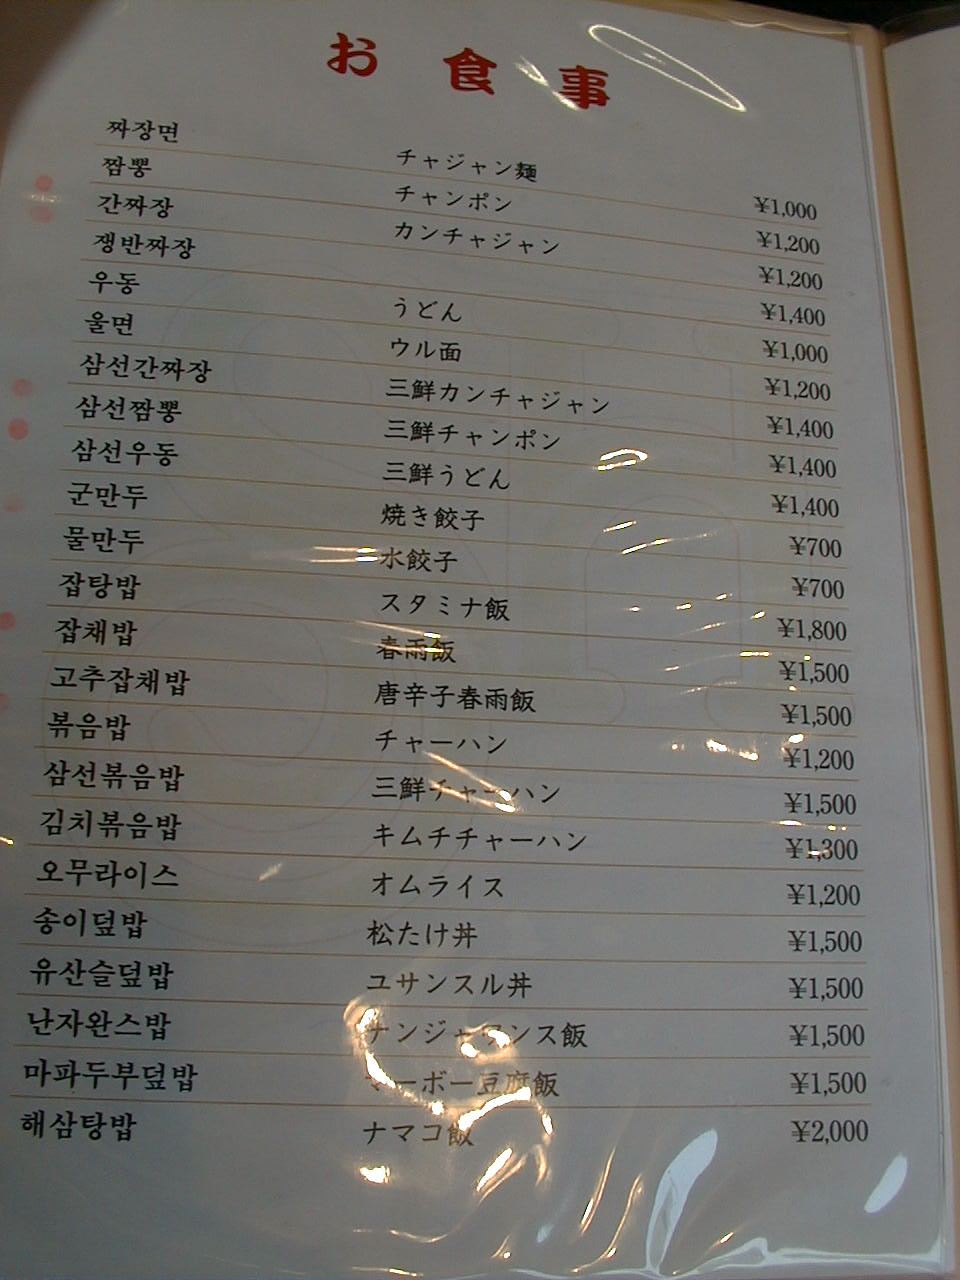 お食事
짜장면 チャジャン麺 ¥1,000
짬뽕 チャンポン ¥1,200
간짜장 カンチャジャン ¥1,200
쟁반짜장 ¥1,400
우동 うどん ¥1,000
울면 ウル面 ¥1,200
삼선간짜장 三鮮カンチャジャン ¥1,400
삼선짬뽕 三鮮チャンポン ¥1,400
삼선우동 三鮮うどん ¥1,400
군만두 焼き餃子 ¥700
물만두 水餃子 ¥700
잡탕밥 スタミナ飯 ¥1,800
잡채밥 春雨飯 ¥1,500
고추잡채밥 唐辛子春雨飯 ¥1,500
볶음밥 チャーハン ¥1,200
삼선볶음밥 三鮮チャーハン ¥1,500
김치볶음밥 キムチチャーハン ¥1,300
오무라이스 オムライス ¥1,200
송이덮밥 松たけ丼 ¥1,500
유산슬덮밥 ユサンスル丼 ¥1,500
난자완스밥 ナンジャワンス飯 ¥1,500
마파두부덮밥 マーボー豆腐飯 ¥1,500
해삼탕밥 ナマコ飯 ¥2,000